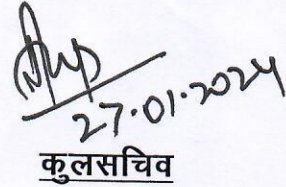 27.01.2024
कुलसचिव